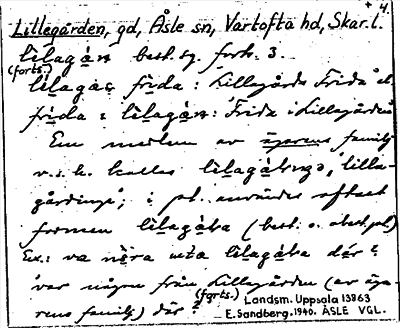 + 4.
Lillegården, gd, Åsle sn, Vartofta hd, Skar. l.
lìlagán best. sg. forts. 3.
(forts.)
lìlagás frída: Lillegårds Frida el.
frída i lìlagán: Frida i Lillegården
En medlem av ägarens familj
v.s.h. kallas lìlagáling, "lilla-
gårdinge"; i pl. användes oftast
formen lìlagába (best. o. obest. pl.)
Ex.: va nồra uta lìlagába dár?
var någon från Lillegården (av äga-
rens familj) där? (forts.)
Landsm. Uppsala 13863
E. Sandberg. 1940. ÅSLE VGL.